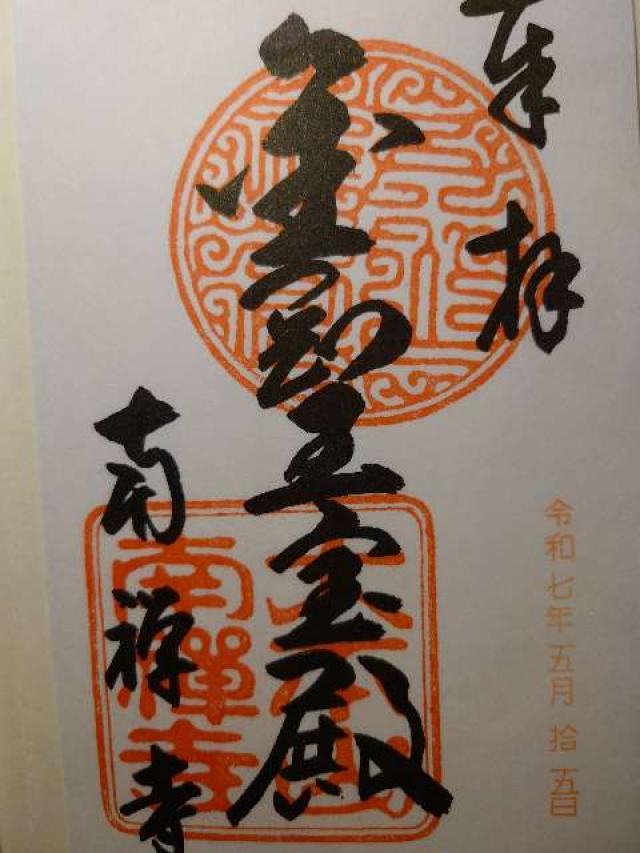 奉拝
令和七年五月拾五日
金剛王宝殿
南禅寺
南禪寺